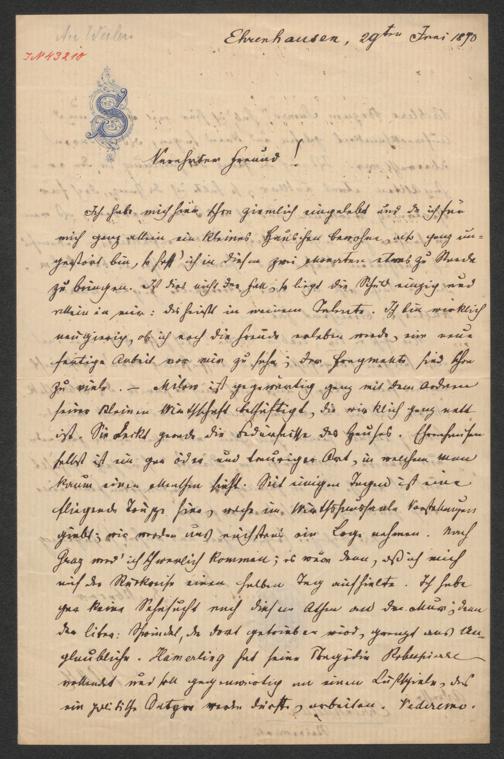 An Weilen
IN 43210
Ehrenhausen, 29ten Juni 1890
S
Verehrter Freund!
Ich habe mich hier schon ziemlich eingelebt und da ich für
mich ganz allein ein kleines Häuschen bewohne, also ganz un-
gestört bin, so hoff' ich in diesen zwei Monaten etwas zu Stande
zu bringen. Ist dies nicht der Fall, so liegt die Schuld einzig und
allein in mir: das heißt in meinem Talente. Ich bin wirklich
neugierig, ob ich noch die Freude erleben werde, eine neue
fertige Arbeit vor mir zu sehen; der Fragmente sind schon
zu viele. — Milow ist gegenwärtig ganz mit dem Ordnen
seiner kleinen Wirthschaft beschäftigt, die wirklich ganz nett
ist. Sie deckt gerade die Bedürfnisse des Hauses. Ehrenhausen
selbst ist ein gar öder und trauriger Ort, in welchem man
kaum einen Menschen sieht. Seit einigen Tagen ist eine
fliegende Truppe hier, welche im Wirthshaussaale Vorstellungen
giebt; wir werden uns nächstens eine Loge nehmen. Nach
Graz werd' ich schwerlich kommen; es wäre denn, daß ich mich
auf der Rückreise einen halben Tag aufhielte. Ich habe
gar keine Sehnsucht nach diesem Athen an der Mur; denn
der liter: Schwindel, der dort getrieben wird, grenzt ans Un-
glaubliche. Hamerling hat seine Tragödie Robespierre
vollendet und soll gegenwärtig an einem Lustspiele, das
eine politische Satyre werden dürfte, arbeiten. Vederemo.